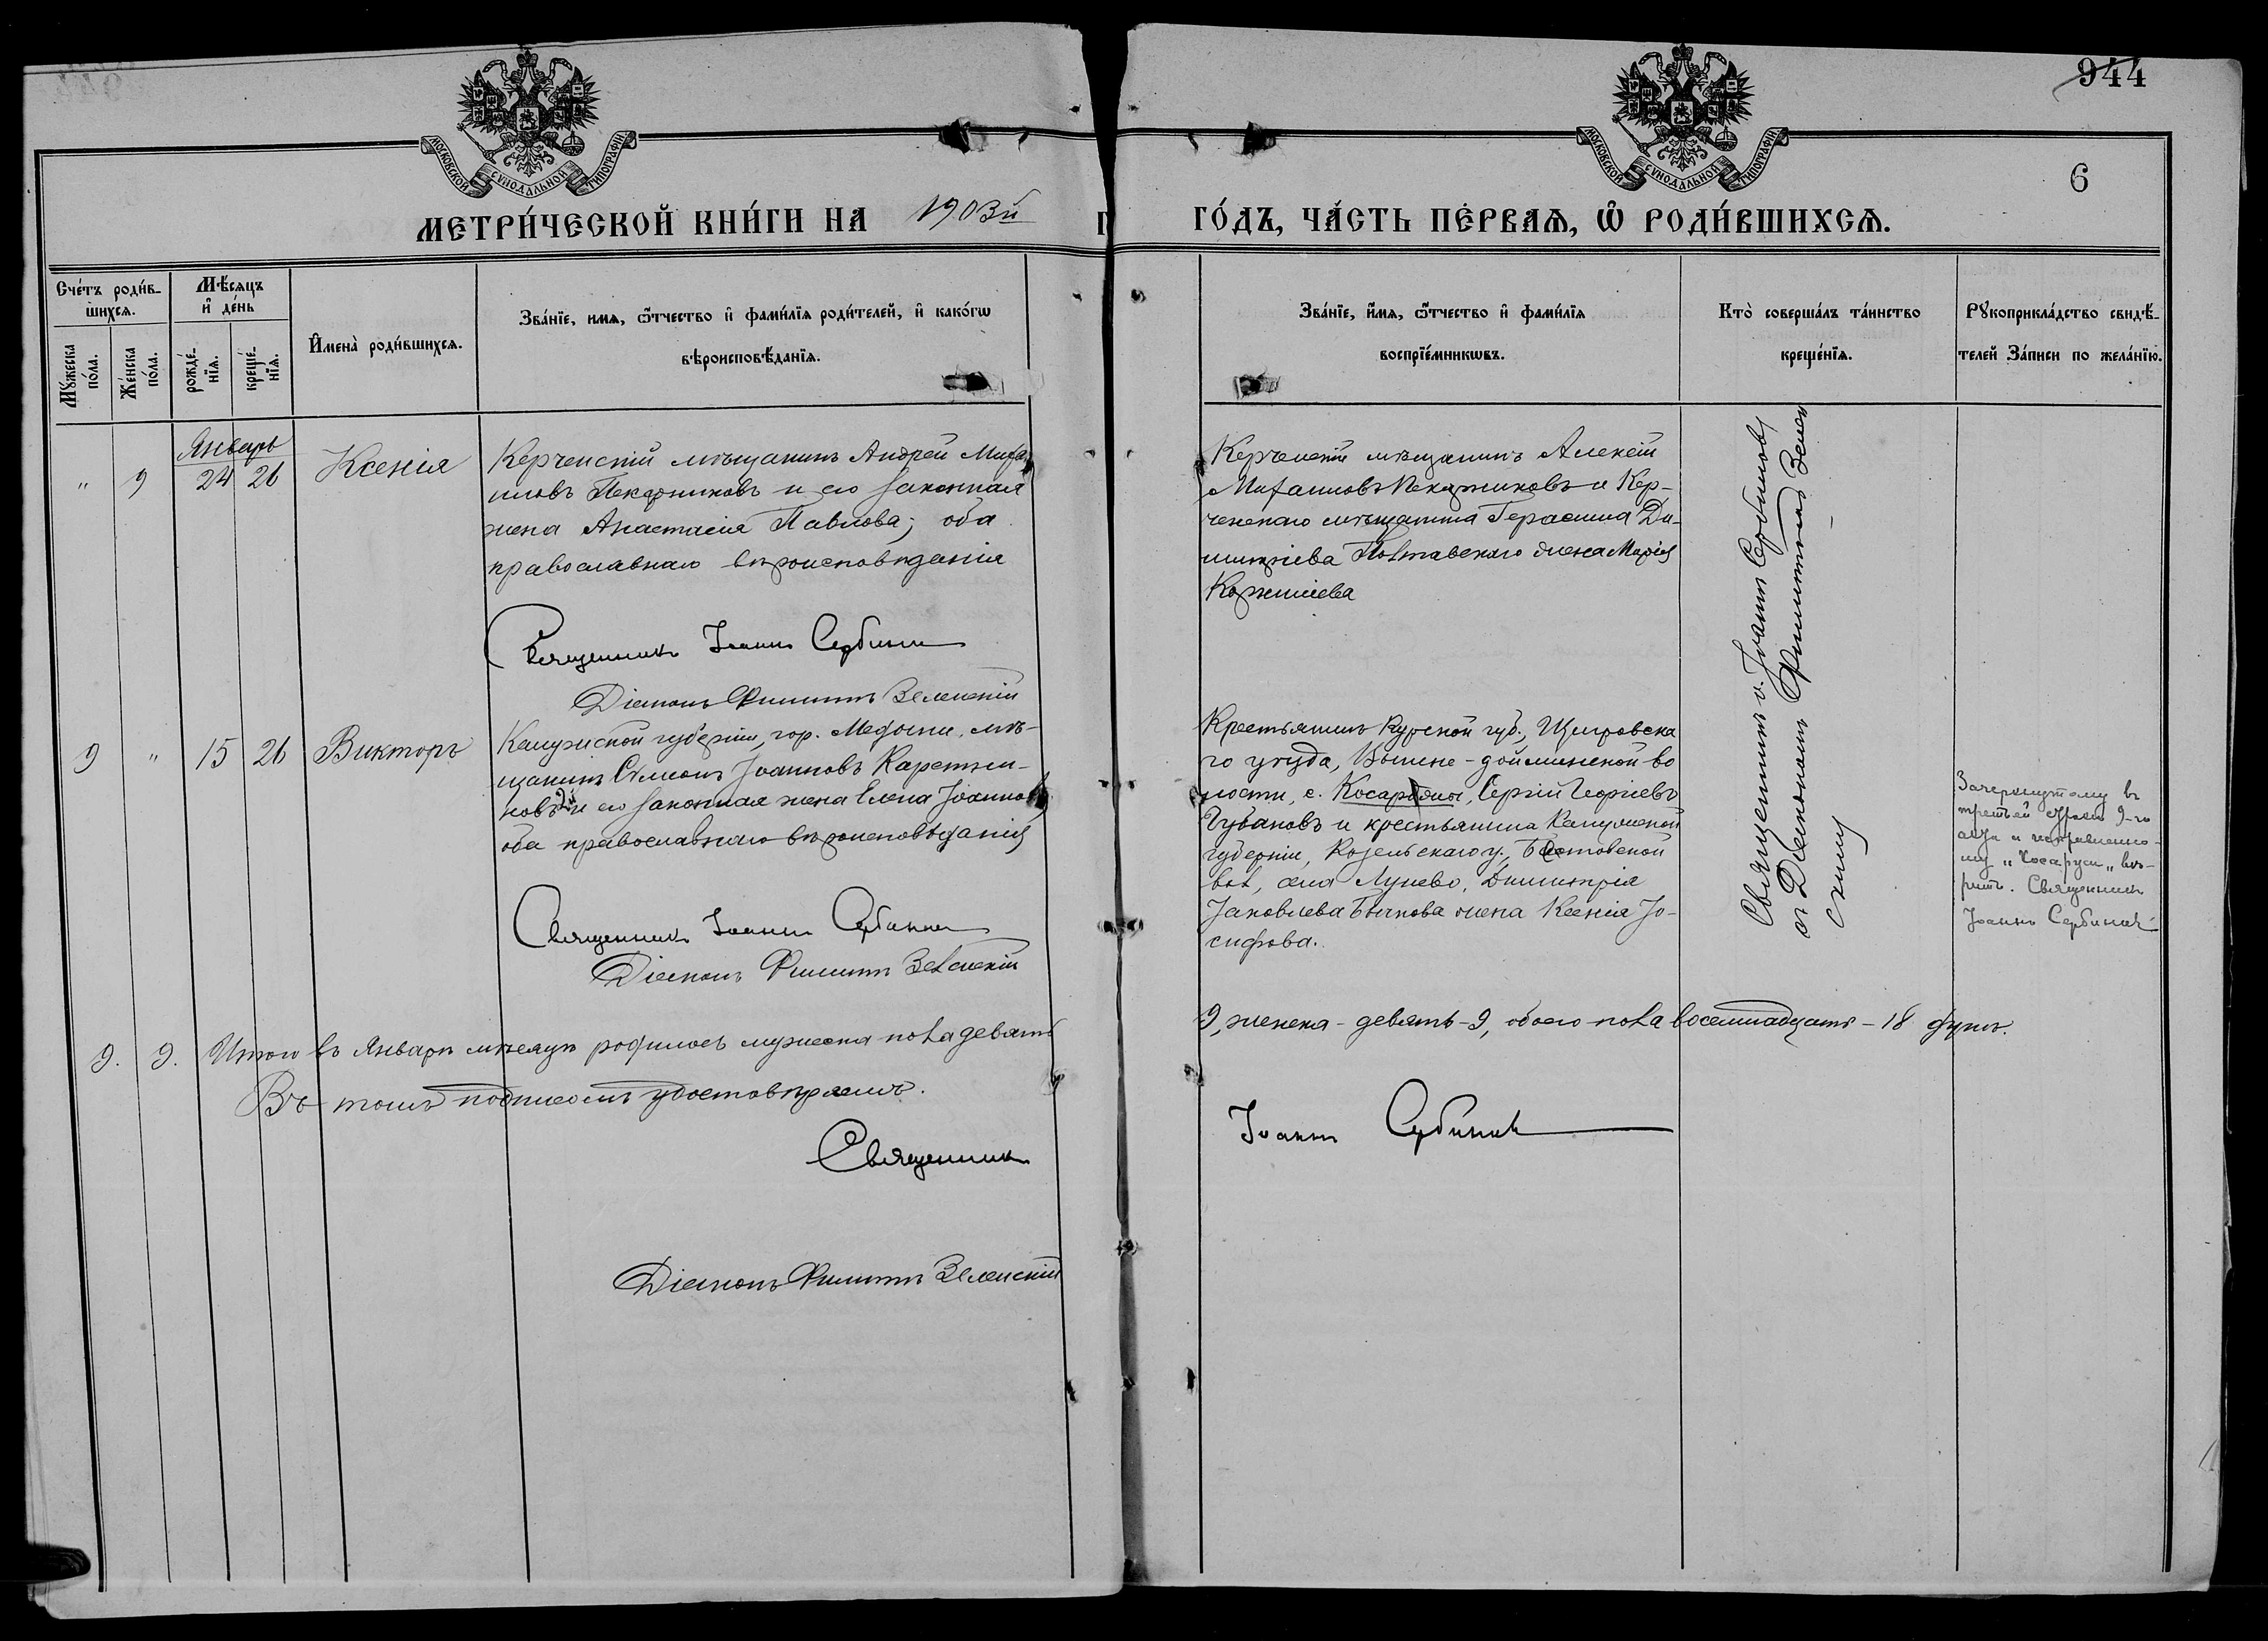 944
6
МОСКОВСКОЙ СѴНОДАЛЬНОЙ ТИПОГРАФІИ
МОСКОВСКОЙ СѴНОДАЛЬНОЙ ТИПОГРАФІИ
МЕТРИ́ЧЕСКОЙ КНИ́ГИ НА 1903й
ГО́ДЪ, ЧА́СТЬ ПЕ́РВАѦ, Ѡ҆ РОДИ́ВШИХСѦ.
Сче́тъ роди́в-
шихсѧ.
Мꙋ́жеска по́ла.
Же́нска по́ла.
Мѣ́сѧцъ
и҆ де́нь
рожде́-нїѧ.
креще́-нїѧ.
И҆мена̀ роди́вшихсѧ.
Зва́нїе, имѧ, ѻ҆́тчество и҆ фами́лїѧ роди́телей, и҆ како́гѡ
вѣроисповѣ́данїѧ.
Зва́нїе, и҆́мѧ, ѻ҆́тчество и҆ фами́лїѧ
воспрїе́мникѡвъ.
Кто̀ соверша́лъ та́инство
креще́нїѧ.
Рꙋкоприкла́дство свидѣ́-
телей За́писи по жела́нїю.
Январь
" 9 24 26 Ксенія
Керченскій мѣщанинъ Андрей Миха
иловъ Пекарниковъ и его законная
жена Анастасія Павлова; оба
православнаго вѣроисповѣданія
Священникъ Іоаннъ Сербинов
Діаконъ Филиппъ Зеленскій
Керченскій мѣщанинъ Алексѣй
Михаиловъ Пекарниковъ и Кер-
ченскаго мѣщанина Герасима Ди-
митріева Полтавскаго жена Марія
Корниліева
9 " 15 26 Викторъ
Калужской губерніи, гор. Медыни, мѣ-
щанинъ Сѵмеонъ Іоанновъ Каретни-
ковъ и его законная жена Елена Іоаннова
оба православнаго вѣроисповѣданія
Священникъ Іоаннъ Сербинов
Діаконъ Филиппъ Зеленскій
Крестьянинъ Курской губ., Щигровска
го уѣзда, Вышне-дойминской во
лости, с. Косаржи, Сергій Георгіевъ
Губановъ и крестьянина Калужской
губерніи, Козельскаго у.,
вол, села Лунево, Димитрія
Іаковлева Бычкова жена Ксенія Іо-
сифова.
Священникъ о. Іоаннъ Сербиновъ
съ Діакономъ Филиппомъ Зелен
скимъ
Зачеркнутому въ
третьей строкѣ 9-го
и исправленно-
му вѣ-
рить. Священникъ
Іоаннъ Сербинов
9. 9. Итого въ Январѣ мѣсяцѣ родилось мужеска пола девять
9, женска - девять - 9, обоего пола восемнадцать - 18 душъ.
Въ томъ подписомъ удостовѣряемъ.
Священникъ
Іоаннъ Сербинов
Діаконъ Филиппъ Зеленскій